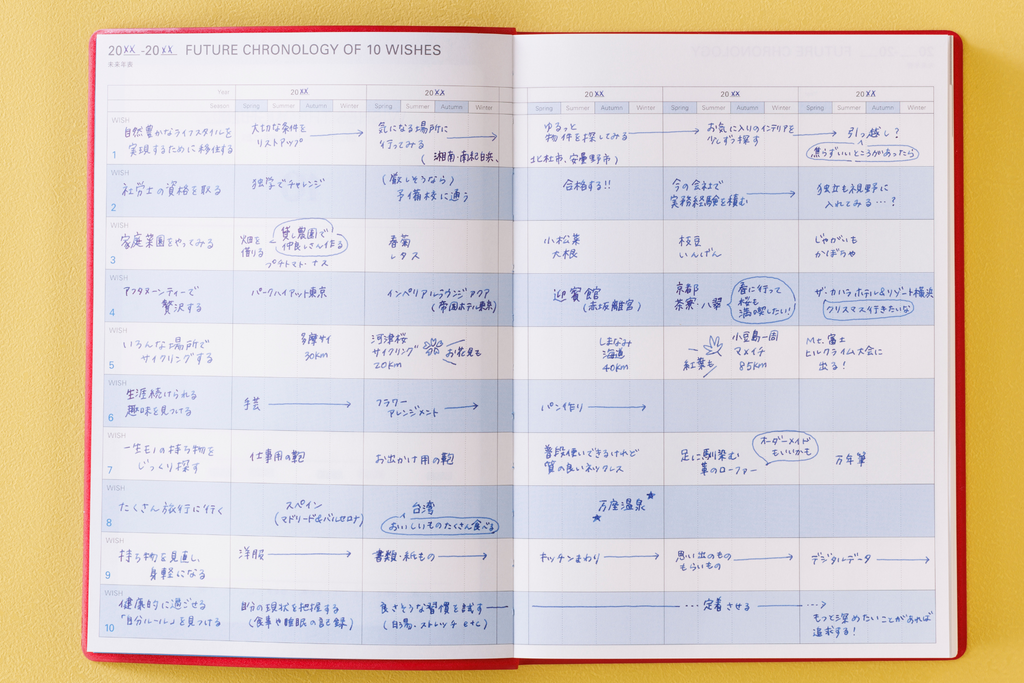 20XX-20XX FUTURE CHRONOLOGY OF 10 WISHES
未来年表
Year 20XX 20XX 20XX 20XX 20XX
Season Spring Summer Autumn Winter Spring Summer Autumn Winter Spring Summer Autumn Winter Spring Summer Autumn Winter Spring Summer Autumn Winter
WISH
1
自然豊かなライフスタイルを
実現するために移住する
大切な条件を
リストアップ
気になる場所に
行ってみる
(湘南・南紀白浜、
北杜市、安曇野市)
ゆるっと
物件を探してみる
お気に入りのインテリアを
少しずつ探す
引っ越し?
焦らずいいところがあったら
WISH
2
社労士の資格を取る
独学でチャレンジ
(厳しそうなら)
予備校に通う
合格する!!
今の会社で
実務経験を積む
独立も視野に
入れてみる…?
WISH
3
家庭菜園をやってみる
畑を
借りる
貸し農園で
仲良しさん作る
プチトマト・ナス
春菊
レタス
小松菜
大根
枝豆
いんげん
じゃがいも
かぼちゃ
WISH
4
アフタヌーンティーで
贅沢する
パークハイアット東京
インペリアルラウンジ アクア
(帝国ホテル東京)
迎賓館
(赤坂離宮)
京都
茶寮・八翠
春に行って
桜も
満喫したい!
ザ・カハラ ホテル&リゾート横浜
クリスマス行きたいな
WISH
5
いろんな場所で
サイクリングする
多摩サイ
30km
河津桜
サイクリング
20km
お花見も
しまなみ
海道
40km
紅葉も
小豆島一周
マメイチ
85km
Mt.富士
ヒルクライム大会に
出る!
WISH
6
生涯続けられる
趣味を見つける
手芸
フラワー
アレンジメント
パン作り
WISH
7
一生モノの持ち物を
じっくり探す
仕事用の鞄
お出かけ用の鞄
普段使いできるけれど
質の良いネックレス
足に馴染む
革のローファー
オーダーメイド
もいいかも
万年筆
WISH
8
たくさん旅行に行く
スペイン
(マドリード&バルセロナ)
台湾
おいしいものたくさん食べる
万座温泉
WISH
9
持ち物を見直し、
身軽になる
洋服
書類・紙もの
キッチンまわり
思い出のもの
もらいもの
デジタルデータ
WISH
10
健康的に過ごせる
「自分ルール」を見つける
自分の現状を把握する
(食事や睡眠の記録)
良さそうな習慣を試す
(白湯・ストレッチ etc)
…定着させる
もっと深めたいことがあれば
追求する!